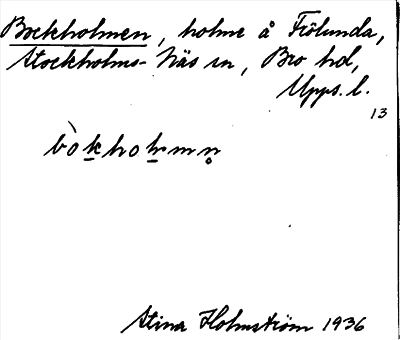 Bockholmen, holme å Frölunda,
Stockholms-Näs sn, Bro hd,
Upps. l.
13
bòkholmn̥
Stina Holmström 1936